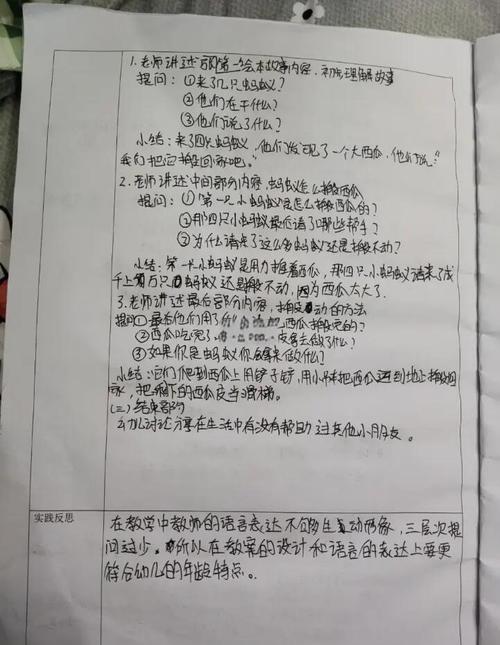 1.老师讲述第一绘本故事内容,初步理解故事
提问:①来了几只蚂蚁?
②他们在干什么?
③他们说了什么?
小结:来了四只蚂蚁,他们发现了一个大西瓜,他们说:"
我们把它搬回家吧。"
2.老师讲述中间部分内容,蚂蚁怎么搬西瓜
提问:①第一只小蚂蚁是怎么搬西瓜的?
②那四只小蚂蚁最后请了哪些帮手?
③为什么请来了这么多蚂蚁还是搬不动?
小结:第一只小蚂蚁是用力推着西瓜,那四只小蚂蚁请来了成
千上万只蚂蚁还是搬不动,因为西瓜太大了.
3.老师讲述最后部分内容,搬动的方法
提问①最后他们用了什么 西瓜搬完的?
②西瓜吃完了 皮拿去做了什么?
③如果你是蚂蚁你会拿来做什么?
小结:它们爬到西瓜上用铲子铲,用小 把西瓜运到地上搬回
家,把剩下的西瓜皮当滑梯。
(三)结束部分
幼儿讨论分享在生活中有没有帮助过其他小朋友。
实践反思
在教学中教师的语言表达不够生动形象,三层次提
问过少。所以在教案的设计和语言的表达上要更
符合幼儿的年龄特点。